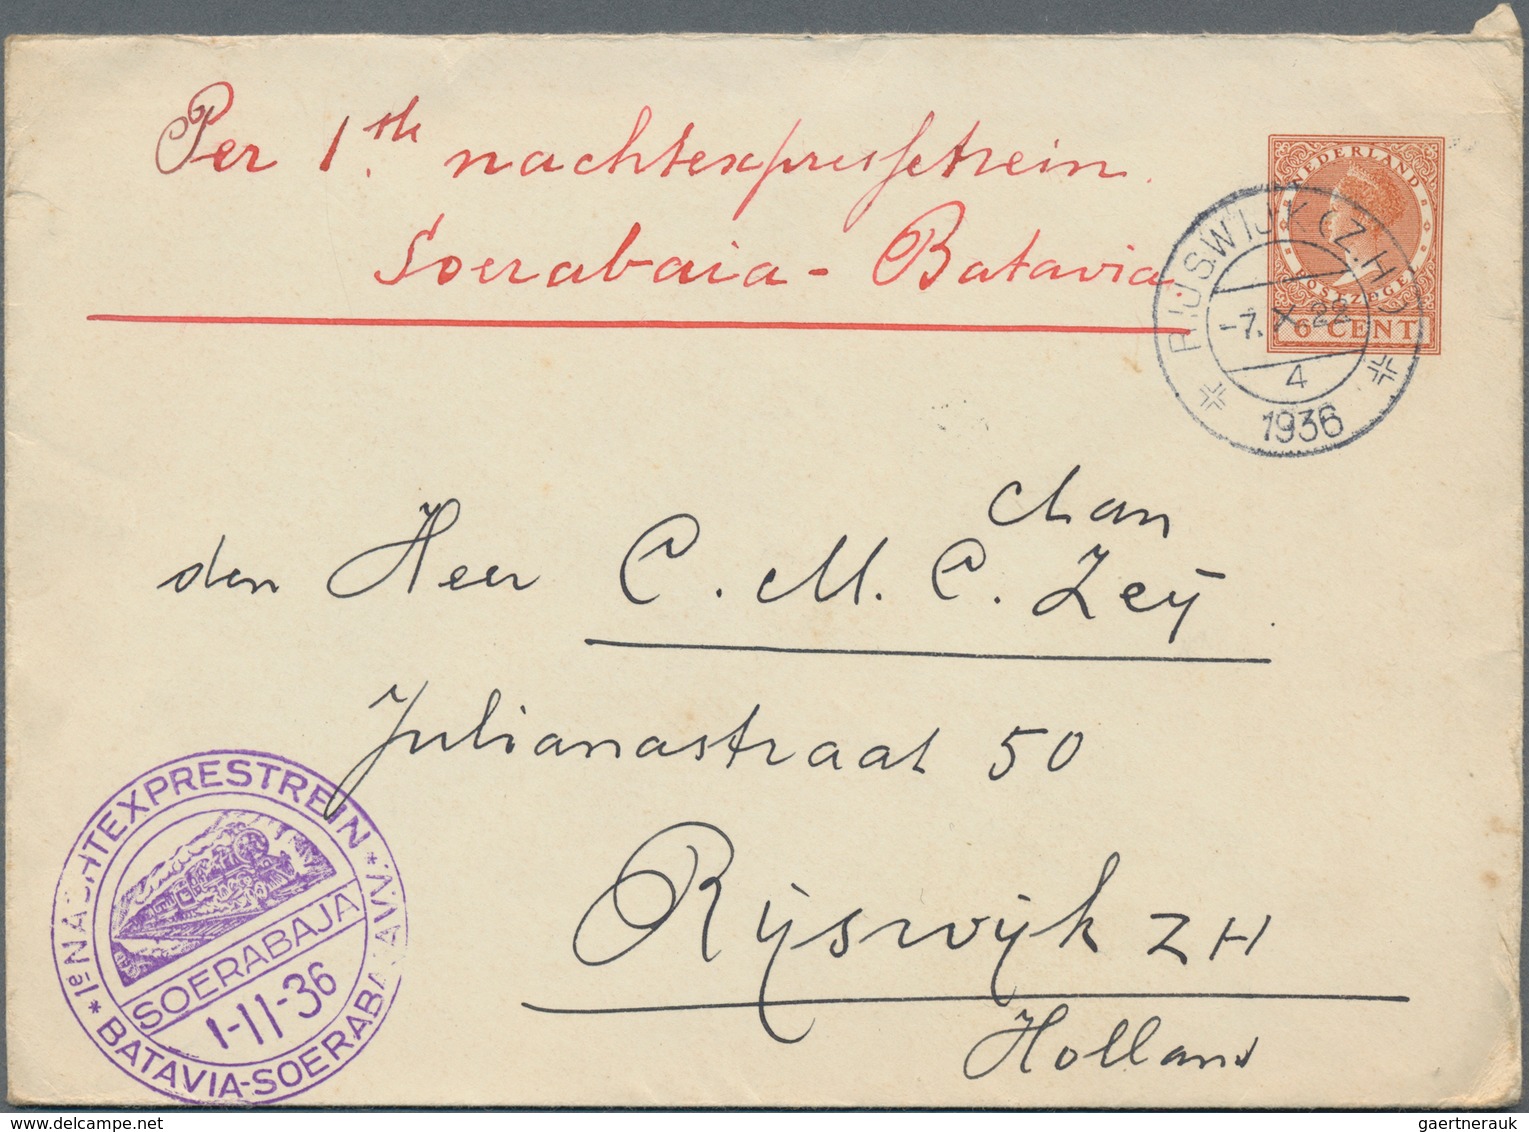 Per 1ste nachtexpressetrein
Soerabaia - Batavia
NEDERLAND
POSTZEGEL
6 CENT
RIJSWIJK (Z.H.)
-7.X.22
4
1936
chan
den Heer C. M. C. Zeÿ
Julianastraat 50
Rÿswÿk ZH
Holland
1e NACHTEXPRESTREIN
SOERABAJA
1-11-36
BATAVIA-SOERABAJA
gaertnerauk